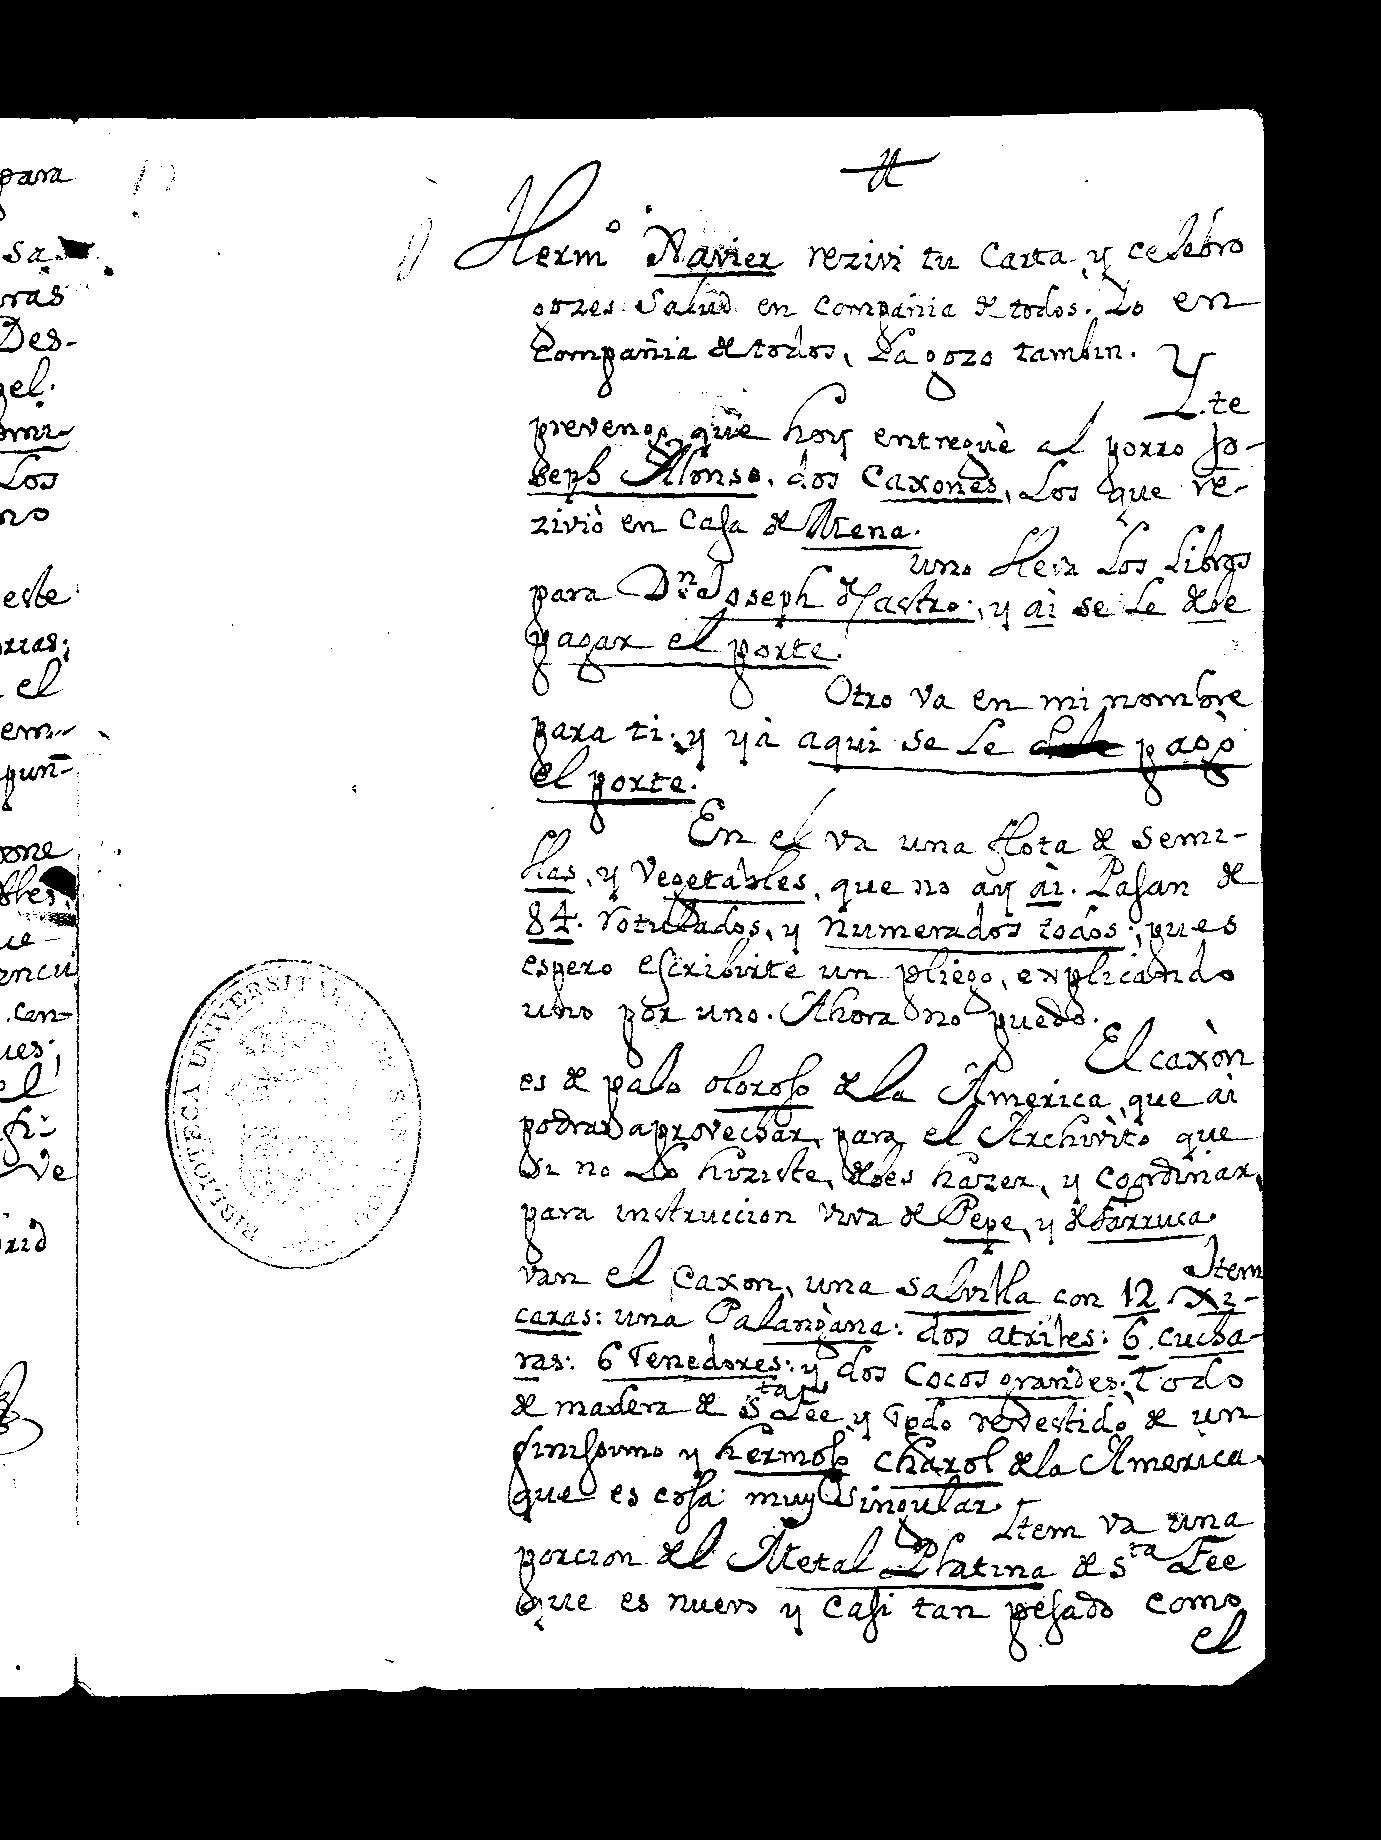 Hermo Xavier rezivi tu Carta, y celebro
gozes Salud en compañia de todos. Yo en
Compañia de todos, la gozo tambin.
Y te
prevengo, que hoy entreguè al porro Jo-
seph Alonso, dos Caxones, Los que re-
ziviò en Casa de Mena.
uno lleva Los Libros
para Dn Joseph de Castro, y ai se le dve
pagar el porte.
Otro va en mi nombre
para ti, y yà aqui se le pagò
el porte.
En el va una flota de semi-
llas, y Vegetables, que no ay ai. Pasan de
84. rotulados, y numerados todos; pues
espero escribirte un pliego, explicando
uno por uno. Ahora no puedo.
El caxòn
es de palo oloroso de la America, que ai
podras aprovechar, para el Archivito que
si no lo hiziste, debes hazer, y coordinar,
para instruccion viva de Pepe, y de Farruca.
Item
van el Caxon, una salvilla con 12 Xi-
caras: una Palangana: dos atriles: 6. cucha-
ras: 6 Tenedores: y dos Cocos grandes. Todo
de madera de Sta Fee, y todo revestido de un
finisimo y hermoso charol de la America,
que es cosa muy singular.
Item va una
porcion del Metal Platina de Sta Fee
que es nuevo y casi tan pesado como
el
para
Des-
Los
este
el
BIBLIOTECA UNIVERSITARIA DE SANTIAGO